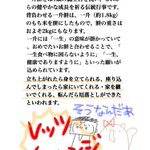 やかな成長を祈る伝統行事です。
背負わせる一升餅は、一升（約1.8kg）
のもち米を原料としたもので、餅の重さは
およそ2kgにもなります。
一升には「一生」の意味が掛かってい
て、おめでたいお餅と合わせることで、
「一生食べ物に困らないように」、「一生
が健康でありますように」といった願いが
込められています。
立ち上がれたら身を立てられる、座り込
んでしまったら家にいてくれる、家を継
いでくれる、転んだら厄落としができた
といいわれます。
そうなんだぁ
レッツ